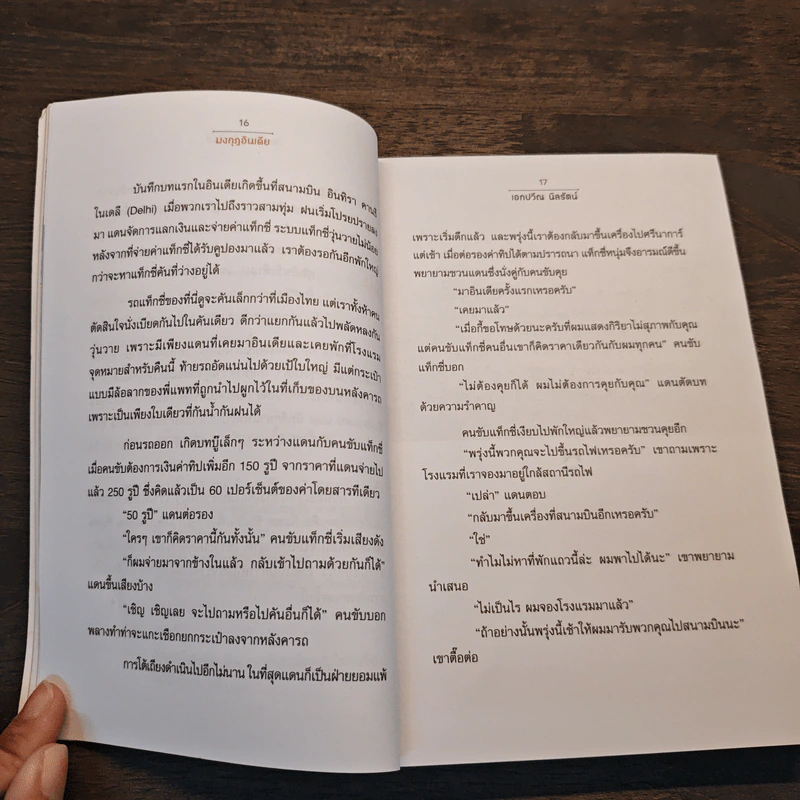 16
มงกุฎอินเดีย
บันทึกบทแรกในอินเดียเกิดขึ้นที่สนามบิน อินทิรา คานธี
ในเดลี (Delhi) เมื่อพวกเราไปถึงราวสามทุ่ม ฝนเริ่มโปรยปรายลง
มา แดนจัดการแลกเงินและจ่ายค่าแท็กซี่ ระบบแท็กซี่วุ่นวายไม่น้อย
หลังจากที่จ่ายค่าแท็กซี่ได้รับคูปองมาแล้ว เราต้องรอกันอีกพักใหญ่
กว่าจะหาแท็กซี่คันที่ว่างอยู่ได้
รถแท็กซี่ของที่นี่ดูจะคันเล็กกว่าที่เมืองไทย แต่เราทั้งห้าคน
ตัดสินใจนั่งเบียดกันไปในคันเดียว ดีกว่าแยกกันแล้วไปพลัดหลงกัน
วุ่นวาย เพราะมีเพียงแดนที่เคยมาอินเดียและเคยพักที่โรงแรม
จุดหมายสำหรับคืนนี้ ท้ายรถอัดแน่นไปด้วยเป้ใบใหญ่ มีแต่กระเป๋า
แบบมีล้อลากของพี่แพทที่ถูกนำไปผูกไว้ในที่เก็บของบนหลังคารถ
เพราะเป็นเพียงใบเดียวที่กันน้ำกันฝนได้
ก่อนรถออก เกิดบทบู๊เล็กๆ ระหว่างแดนกับคนขับแท็กซี่
เมื่อคนขับต้องการเงินค่าทิปเพิ่มอีก 150 รูปี จากราคาที่แดนจ่ายไป
แล้ว 250 รูปี ซึ่งคิดแล้วเป็น 60 เปอร์เซ็นต์ของค่าโดยสารทีเดียว
“50 รูปี” แดนต่อรอง
“ใครๆ เขาก็คิดราคานี้กันทั้งนั้น” คนขับแท็กซี่เริ่มเสียงดัง
“ก็ผมจ่ายมาจากข้างในแล้ว กลับเข้าไปถามด้วยกันก็ได้”
แดนขึ้นเสียงบ้าง
“เชิญ เชิญเลย จะไปถามหรือไปคันอื่นก็ได้” คนขับบอก
พลางทำท่าจะแกะเชือกยกกระเป๋าลงจากหลังคารถ
การโต้เถียงดำเนินไปอีกไม่นาน ในที่สุดแดนก็เป็นฝ่ายยอมแพ้
17
เอกปวีณ นิลรัตน์
เพราะเริ่มดึกแล้ว และพรุ่งนี้เราต้องกลับมาขึ้นเครื่องไปศรีนาการ์
แต่เช้า เมื่อต่อรองค่าทิปได้ตามปรารถนา แท็กซี่หนุ่มจึงอารมณ์ดีขึ้น
พยายามชวนแดนซึ่งนั่งคู่กับคนขับคุย
“มาอินเดียครั้งแรกเหรอครับ”
“เคยมาแล้ว”
“เมื่อกี้ขอโทษด้วยนะครับที่ผมแสดงกิริยาไม่สุภาพกับคุณ
แต่คนขับแท็กซี่คนอื่นเขาก็คิดราคาเดียวกันกับผมทุกคน” คนขับ
แท็กซี่บอก
“ไม่ต้องคุยก็ได้ ผมไม่ต้องการคุยกับคุณ” แดนตัดบท
ด้วยความรำคาญ
คนขับแท็กซี่เงียบไปพักใหญ่แล้วพยายามชวนคุยอีก
“พรุ่งนี้พวกคุณจะไปขึ้นรถไฟเหรอครับ” เขาถามเพราะ
โรงแรมที่เราจองมาอยู่ใกล้สถานีรถไฟ
“เปล่า” แดนตอบ
“กลับมาขึ้นเครื่องที่สนามบินอีกเหรอครับ”
“ใช่”
“ทำไมไม่หาที่พักแถวนี้ล่ะ ผมพาไปได้นะ” เขาพยายาม
นำเสนอ
“ไม่เป็นไร ผมจองโรงแรมมาแล้ว”
“ถ้าอย่างนั้นพรุ่งนี้เช้าให้ผมมารับพวกคุณไปสนามบินนะ”
เขาตื๊อต่อ